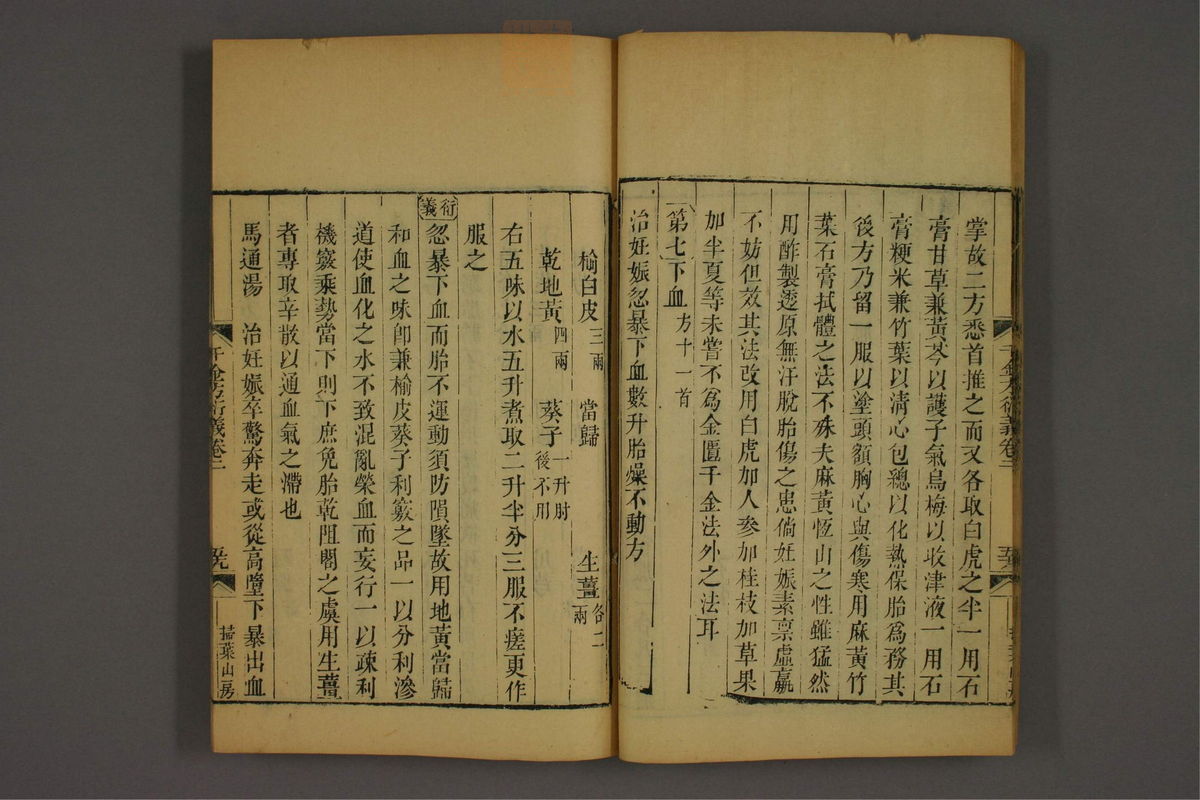 掌故二方悉首推之而又各取白虎之半一用石
膏甘草兼黃芩以護子氣烏梅以收津液一用石
膏粳米兼竹葉以清心包總以化熱保胎爲務其
後方乃留一服以塗頭額胸心與傷寒用麻黃竹
葉石膏拭體之法不殊夫麻黃恆山之性雖猛然
用酢製透原無汗脫胎傷之患倘妊娠素禀虛羸
不妨但效其法改用白虎加人参加桂枝加草果
加半夏等未嘗不爲金匱千金法外之法耳
第七下血方十一首
治妊娠忽暴下血數升胎燥不動方
榆白皮三兩 當歸 生薑各二兩
乾地黃四兩 葵子一升肘後不用
右五味以水五升煮取二升半分三服不瘥更作
服之
衍義忽暴下血而胎不運動須防隕墜故用地黃當歸
和血之味卽兼榆皮葵子利竅之品一以分利滲
道使血化之水不致混亂榮血而妄行一以疎利
機竅乘勢當下則下庶免胎乾阻閣之虞用生薑
者專取辛散以通血氣之滯也
馬通湯 治妊娠卒驚奔走或從高墮下暴出血
千金方衍義卷二
五九
掃葉山房